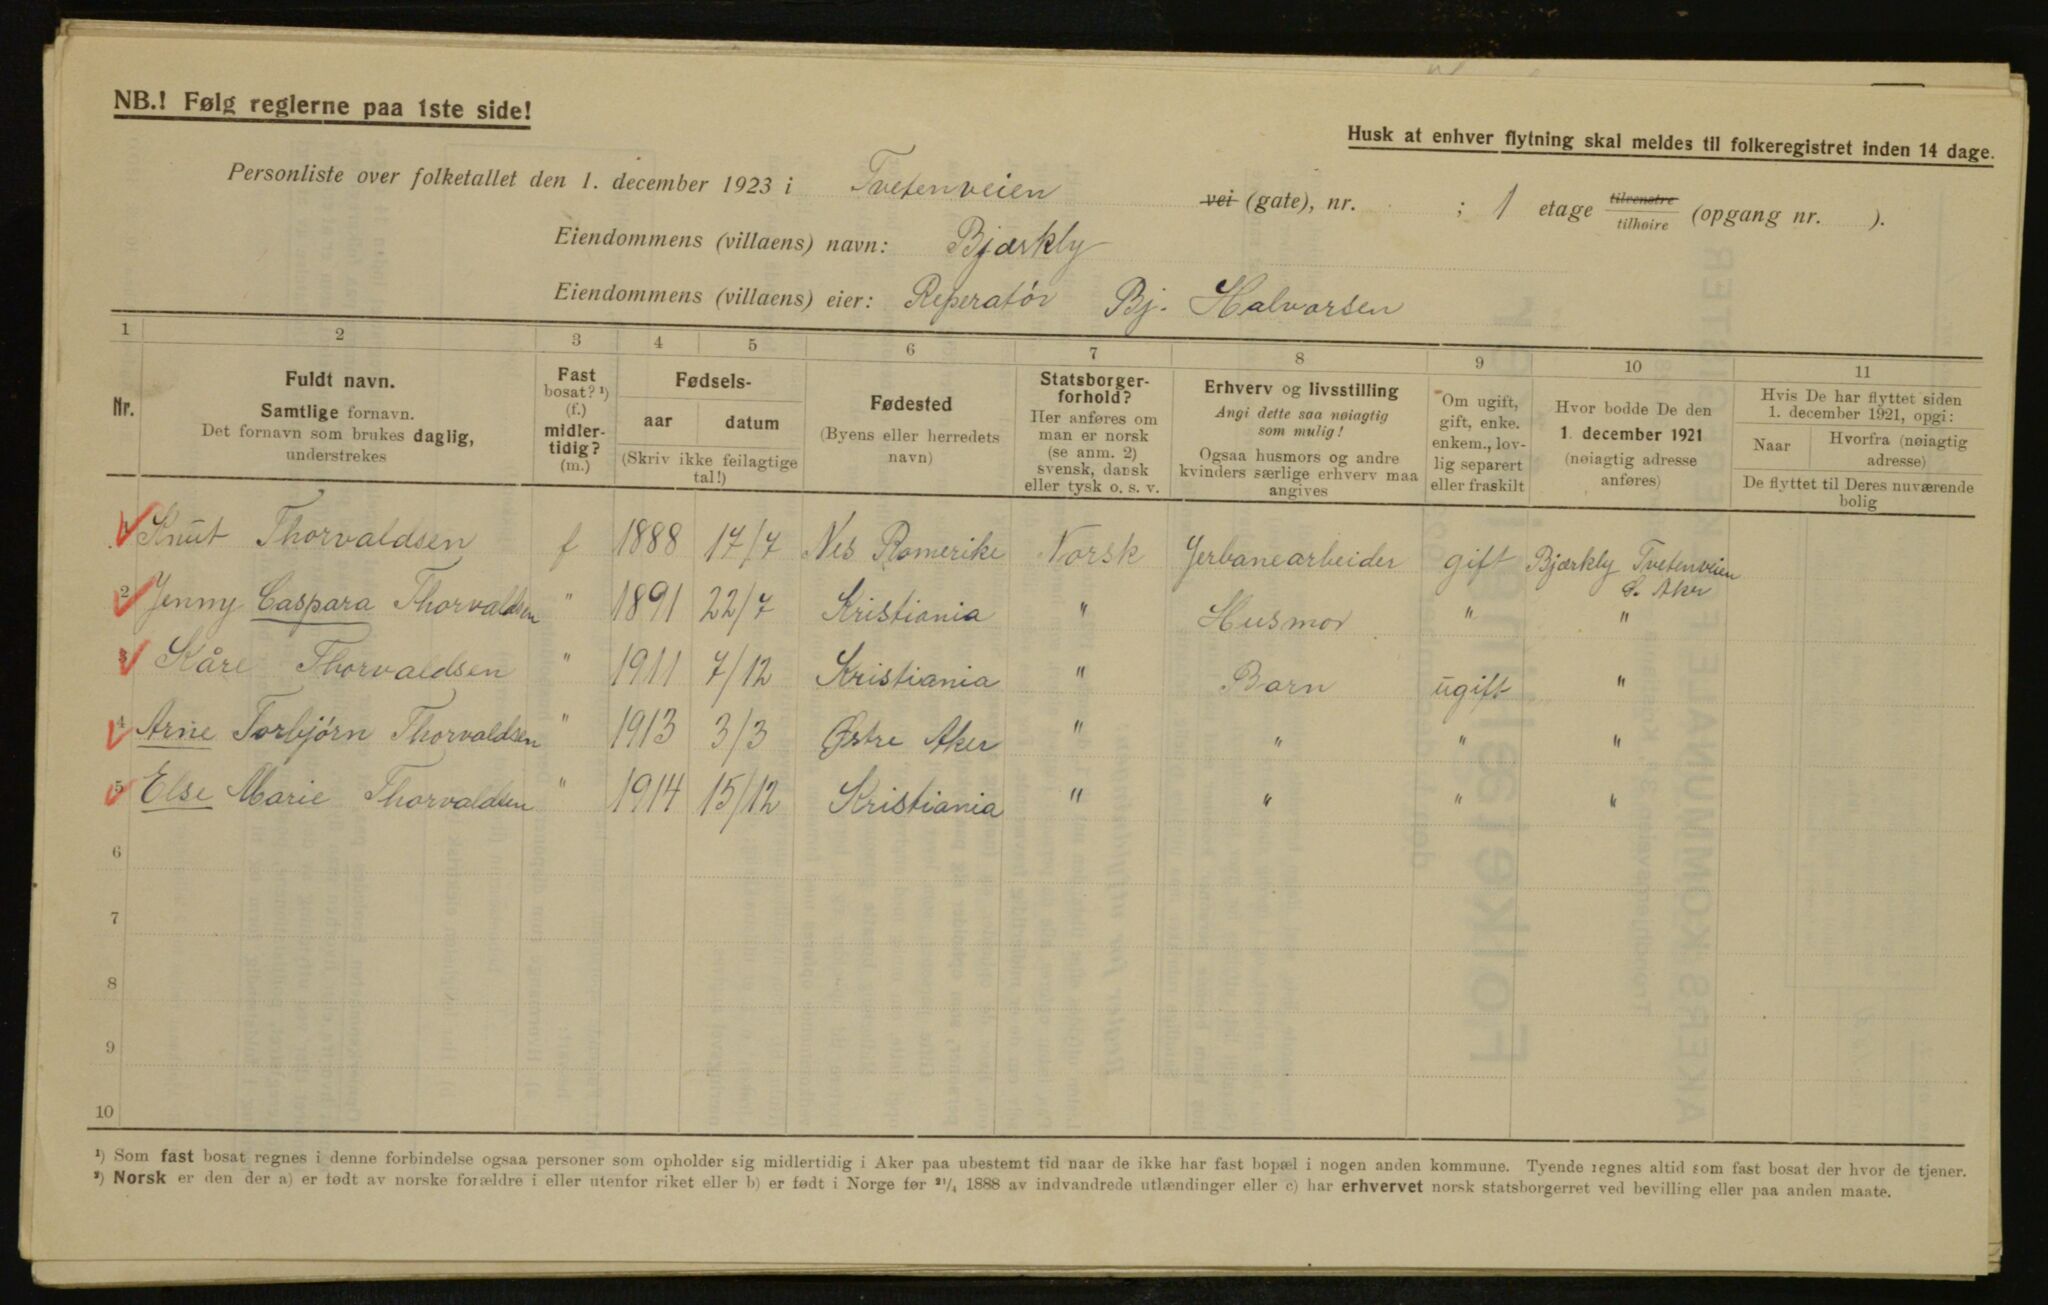 NB.! Følg reglerne paa 1ste side!
Husk at enhver flytning skal meldes til folkeregistret inden 14 dage.
Personliste over folketallet den 1. december 1923 i Tvetenveien vei (gate), nr. ; 1 etage tilvenstre/tilhøire (opgang nr. ).
Eiendommens (villaens) navn: Bjærkly
Eiendommens (villaens) eier: Reperatór Bj. Halvorsen
1 2 3 4 5 6 7 8 9 10 11
Nr.
Fuldt navn.
Samtlige fornavn.
Det fornavn som brukes daglig,
understrekes
Fast
bosat? ¹)
(f.)
midler-
tidig?
(m.)
Fødsels-
aar datum
(Skriv ikke feilagtige
tal!)
Fødested
(Byens eller herredets
navn)
Statsborger-
forhold?
Her anføres om
man er norsk
(se anm. 2)
svensk, dansk
eller tysk o. s. v.
Erhverv og livsstilling
Angi dette saa nøiagtig
som mulig!
Ogsaa husmors og andre
kvinders særlige erhverv maa
angives
Om ugift,
gift, enke.
enkem., lov-
lig separert
eller fraskilt
Hvor bodde De den
1. december 1921
(nøiagtig adresse
anføres)
Hvis De har flyttet siden
1. december 1921, opgi:
Naar
Hvorfra (nøiagtig
adresse)
De flyttet til Deres nuværende
bolig
1 Knut Thorvaldsen f 1888 17/7 Nes Romerike Norsk Jerbanearbeider gift Bjærkly Tvetenveien
Ø. Aker
2 Jenny Caspara Thorvaldsen " 1891 22/7 Kristiania " Husmor " "
3 Kåre Thorvaldsen " 1911 7/12 Kristiania " Barn ugift "
4 Arne Torbjórn Thorvaldsen " 1913 3/3 Østre Aker " " " "
5 Else Marie Thorvaldsen " 1914 15/12 Kristiania " " " "
6
7
8
9
10
¹) Som fast bosat regnes i denne forbindelse ogsaa personer som opholder sig midlertidig i Aker paa ubestemt tid naar de ikke har fast bopæl i nogen anden kommune. Tyende regnes altid som fast bosat der hvor de tjener.
²) Norsk er den der a) er født av norske forældre i eller utenfor riket eller b) er født i Norge før ²¹/₄ 1888 av indvandrede utlændinger eller c) har erhvervet norsk statsborgerret ved bevilling eller paa anden maate.